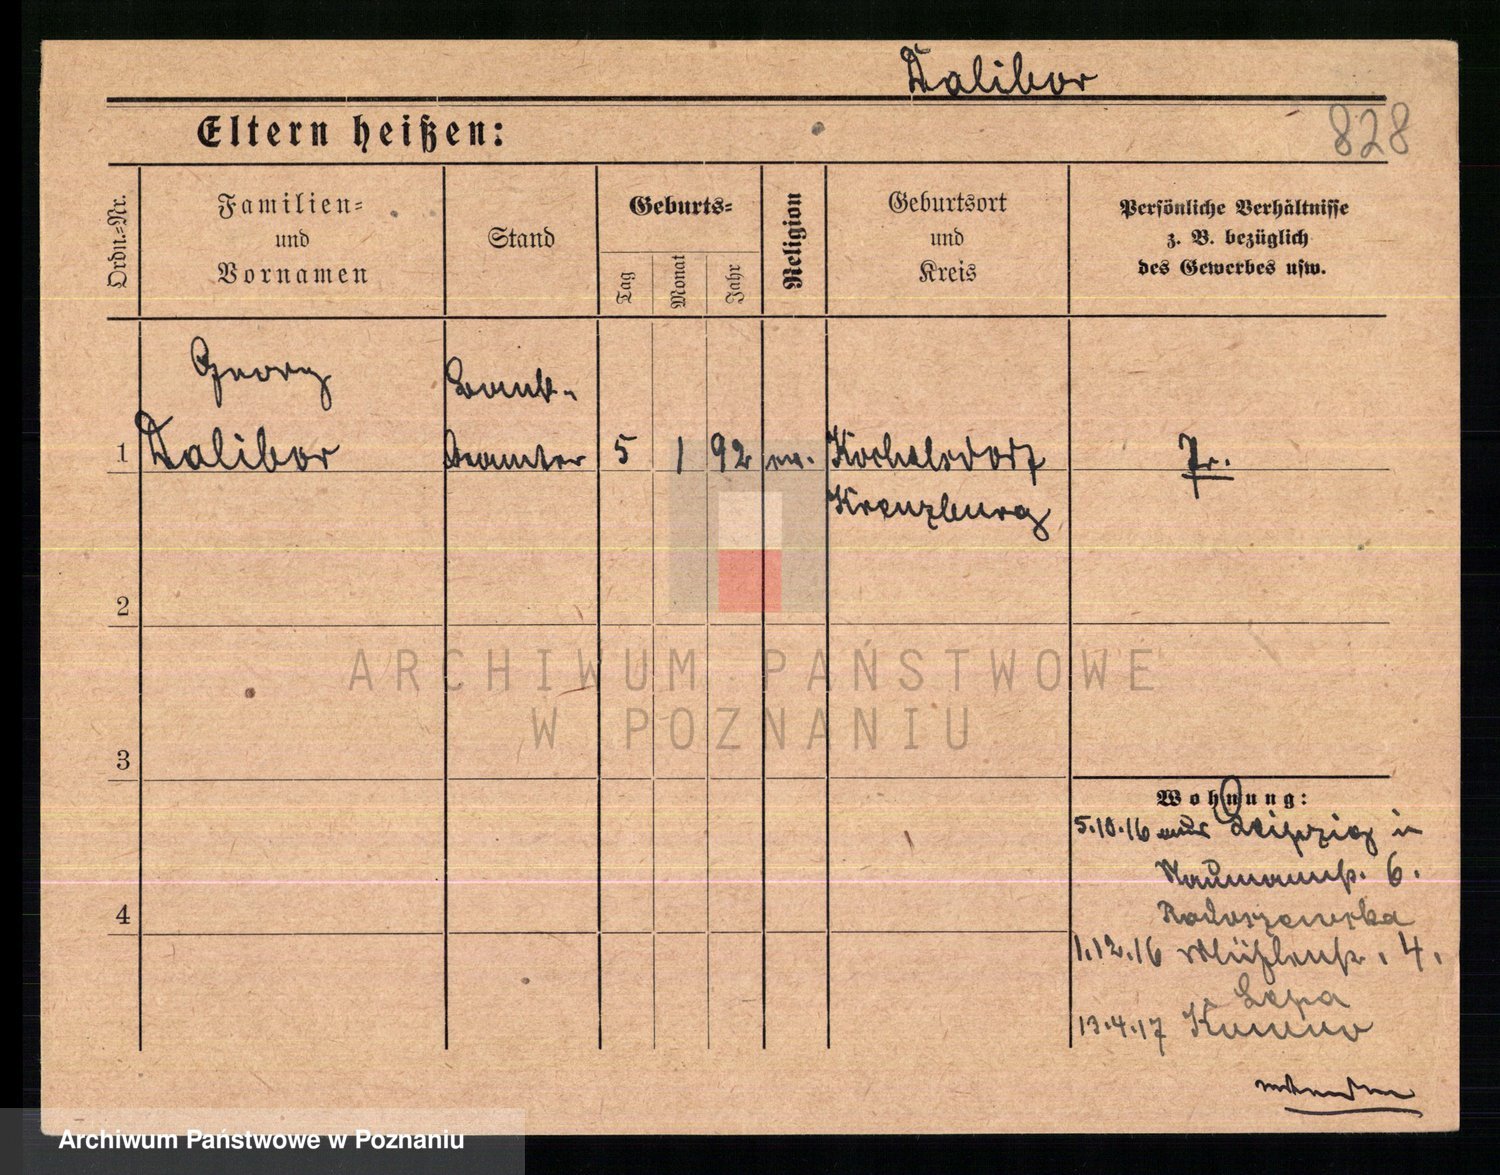 Dalibor
828
Eltern heißen:
Ordn.-Nr.
Familien-
und
Vornamen
Stand
Geburts-
Tag
Monat
Jahr
Religion
Geburtsort
und
Kreis
Persönliche Verhältnisse
z. B. bezüglich
des Gewerbes usw.
Georg
Dalibor
Bank-
beamter
1
5
1
92
ev.
Kochelsdorf
Kreuzburg
Pr.
2
3
4
Wohnung:
5.10.16 aus Leipzig in
Naumannstr. 6.
Radoszewska
1.12.16 Mühlenstr. 4.
Lepa
13.4.17
ARCHIWUM PAŃSTWOWE
W POZNANIU
Archiwum Państwowe w Poznaniu